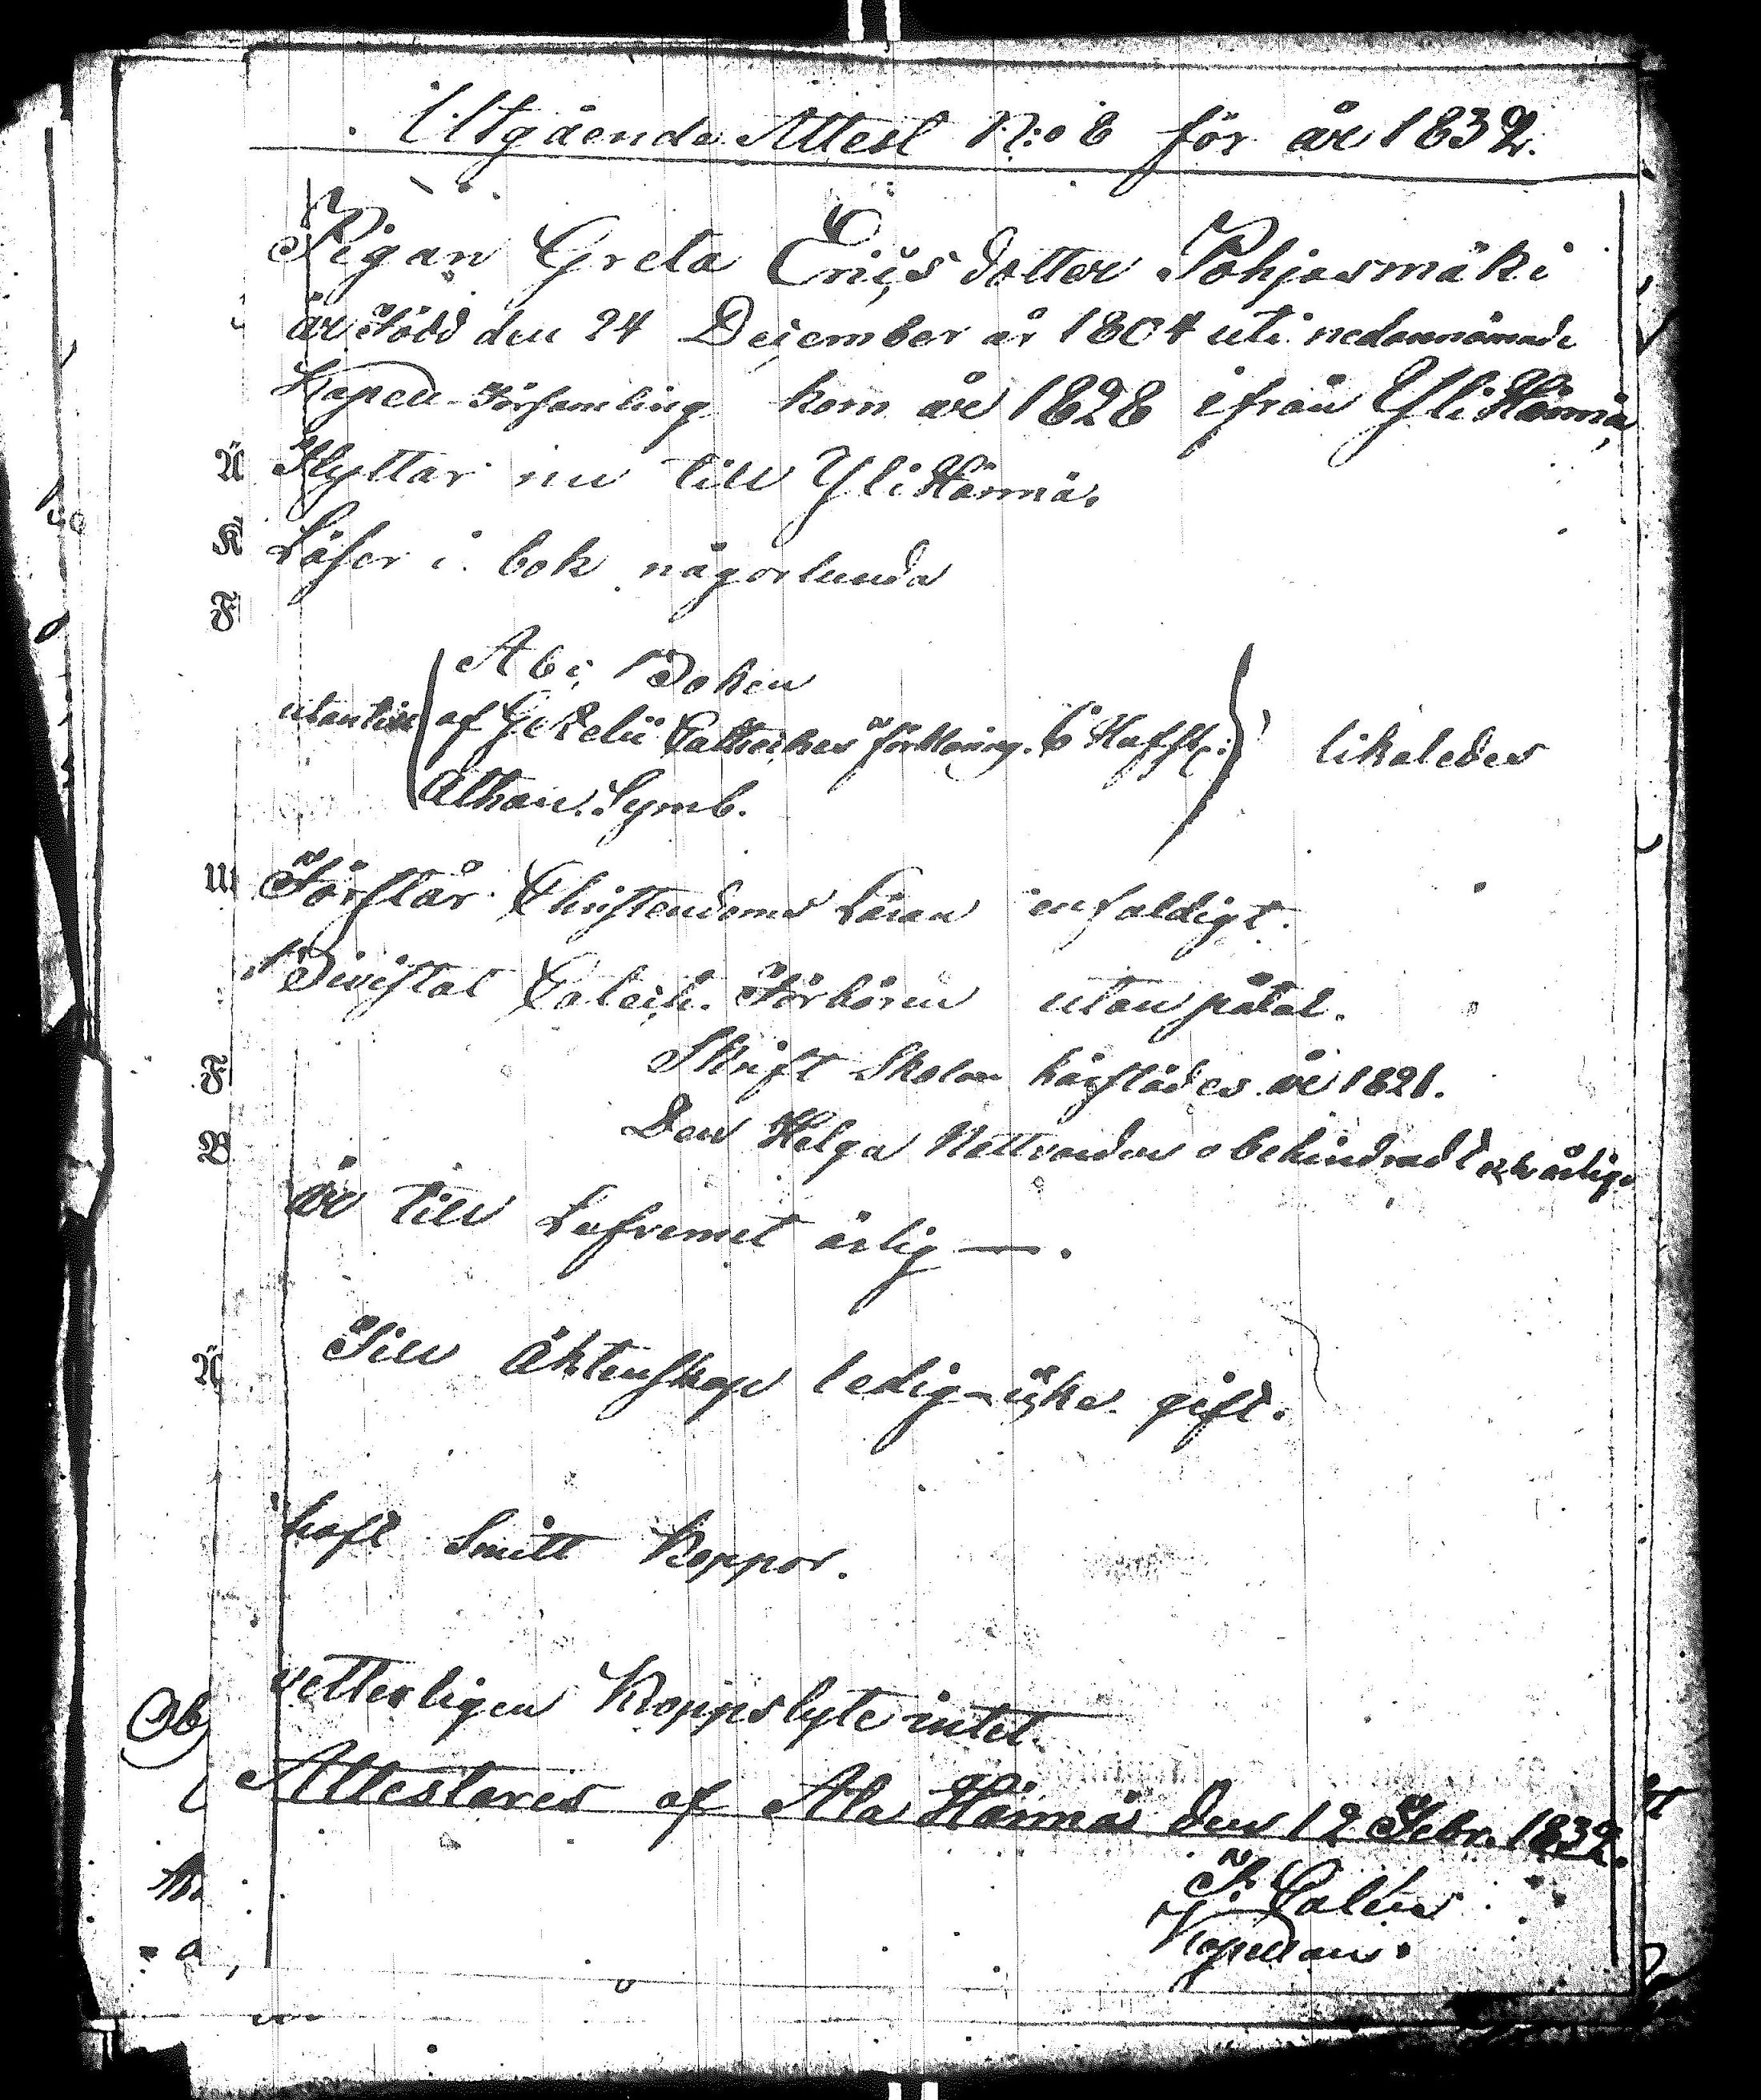 Utgående Attest N:o 8 för år 1832.
Pigan Greta Ericsdotter Pohjasmäki
är Född den 24 December år 1804 uti nedannämnde
Kapell-Församling kom år 1828 ifrån Yli Härmä,
Flyttar nu till Yli Härmä.
Läser i bok någorlunda
Abc, Boken
utantill af Gezelii Cateches förklaring. 6 Hufst: likaledes
Athan. Symb.
Förstår Christendoms Läran enfaldigt.
Bivistat Catech. Förhören utan påtal.
Skrift Skolan härstädes år 1821.
Den Helga Nattvarden obehindradt och årlig
är till Lefvernet ärlig —.
Till Äktenskap ledig - icke gift.
haft Smitt Koppor.
vetterligen Kroppslyte intet.
Attesteres af Ala Härmä den 12 Febr. 1832.
Kapellan.
Ü
K
F
U
F
B
Ä
Ob